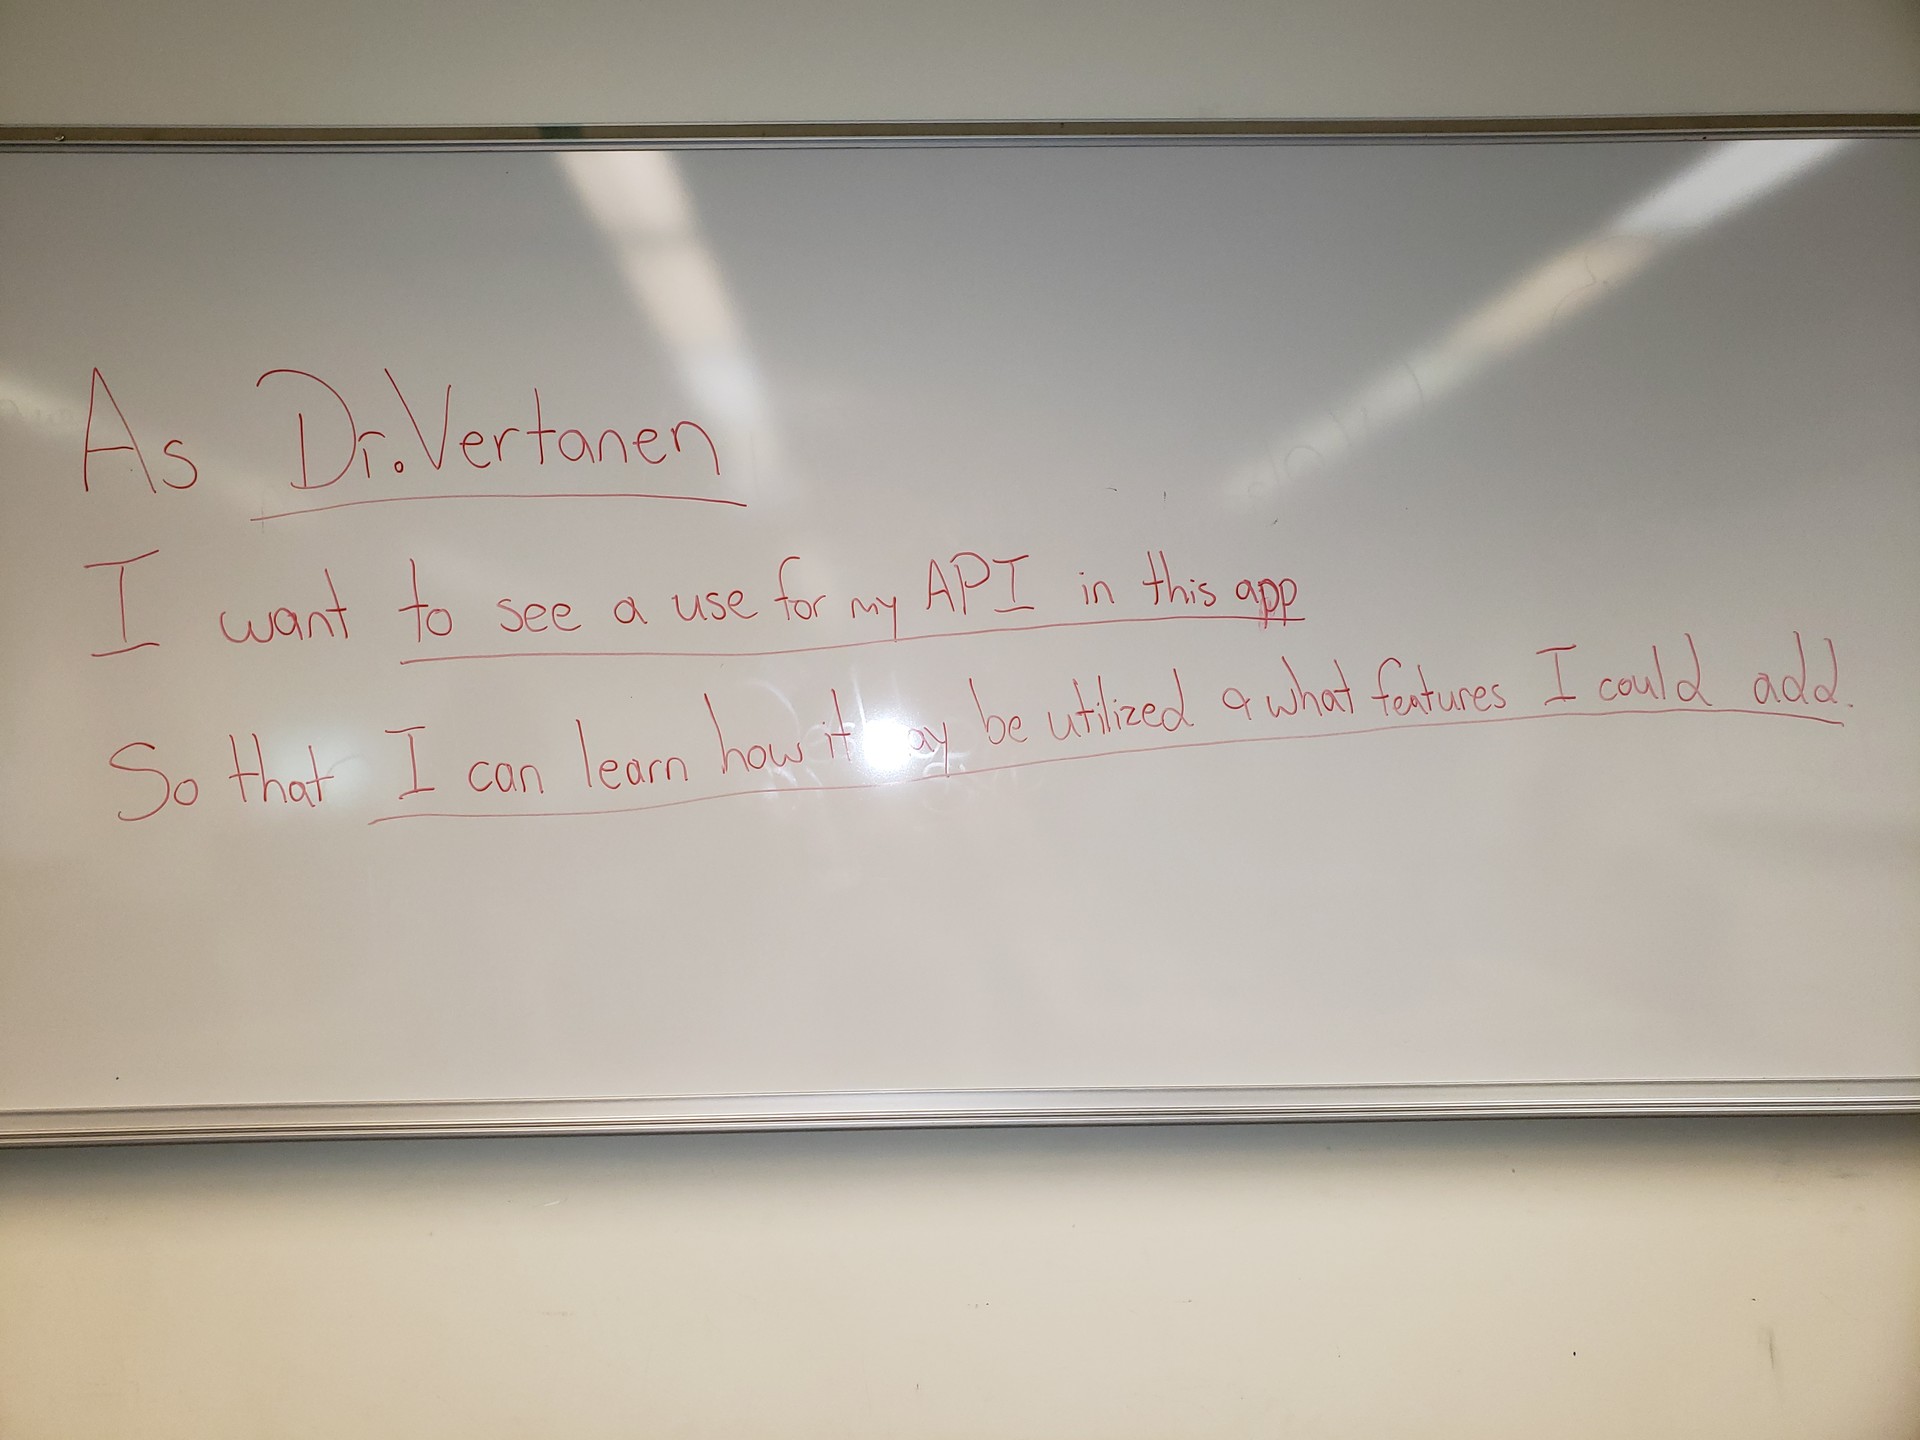 As Dr. Vertanen
I want to see a use for my API in this app
So that I can learn how it may be utilized & what features I could add.